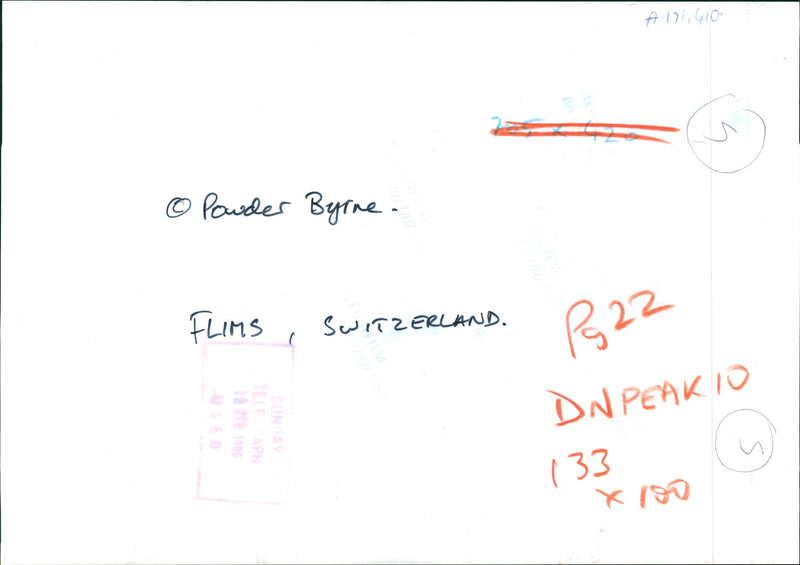 A.171,410.
705 x 420
5
© Powder Byrne.
FLIMS, SWITZERLAND.
Pg 22
DNPEAK10
133
x 100
5
SUNDAY
TELEGRAPH
12 FEB 1995
USED